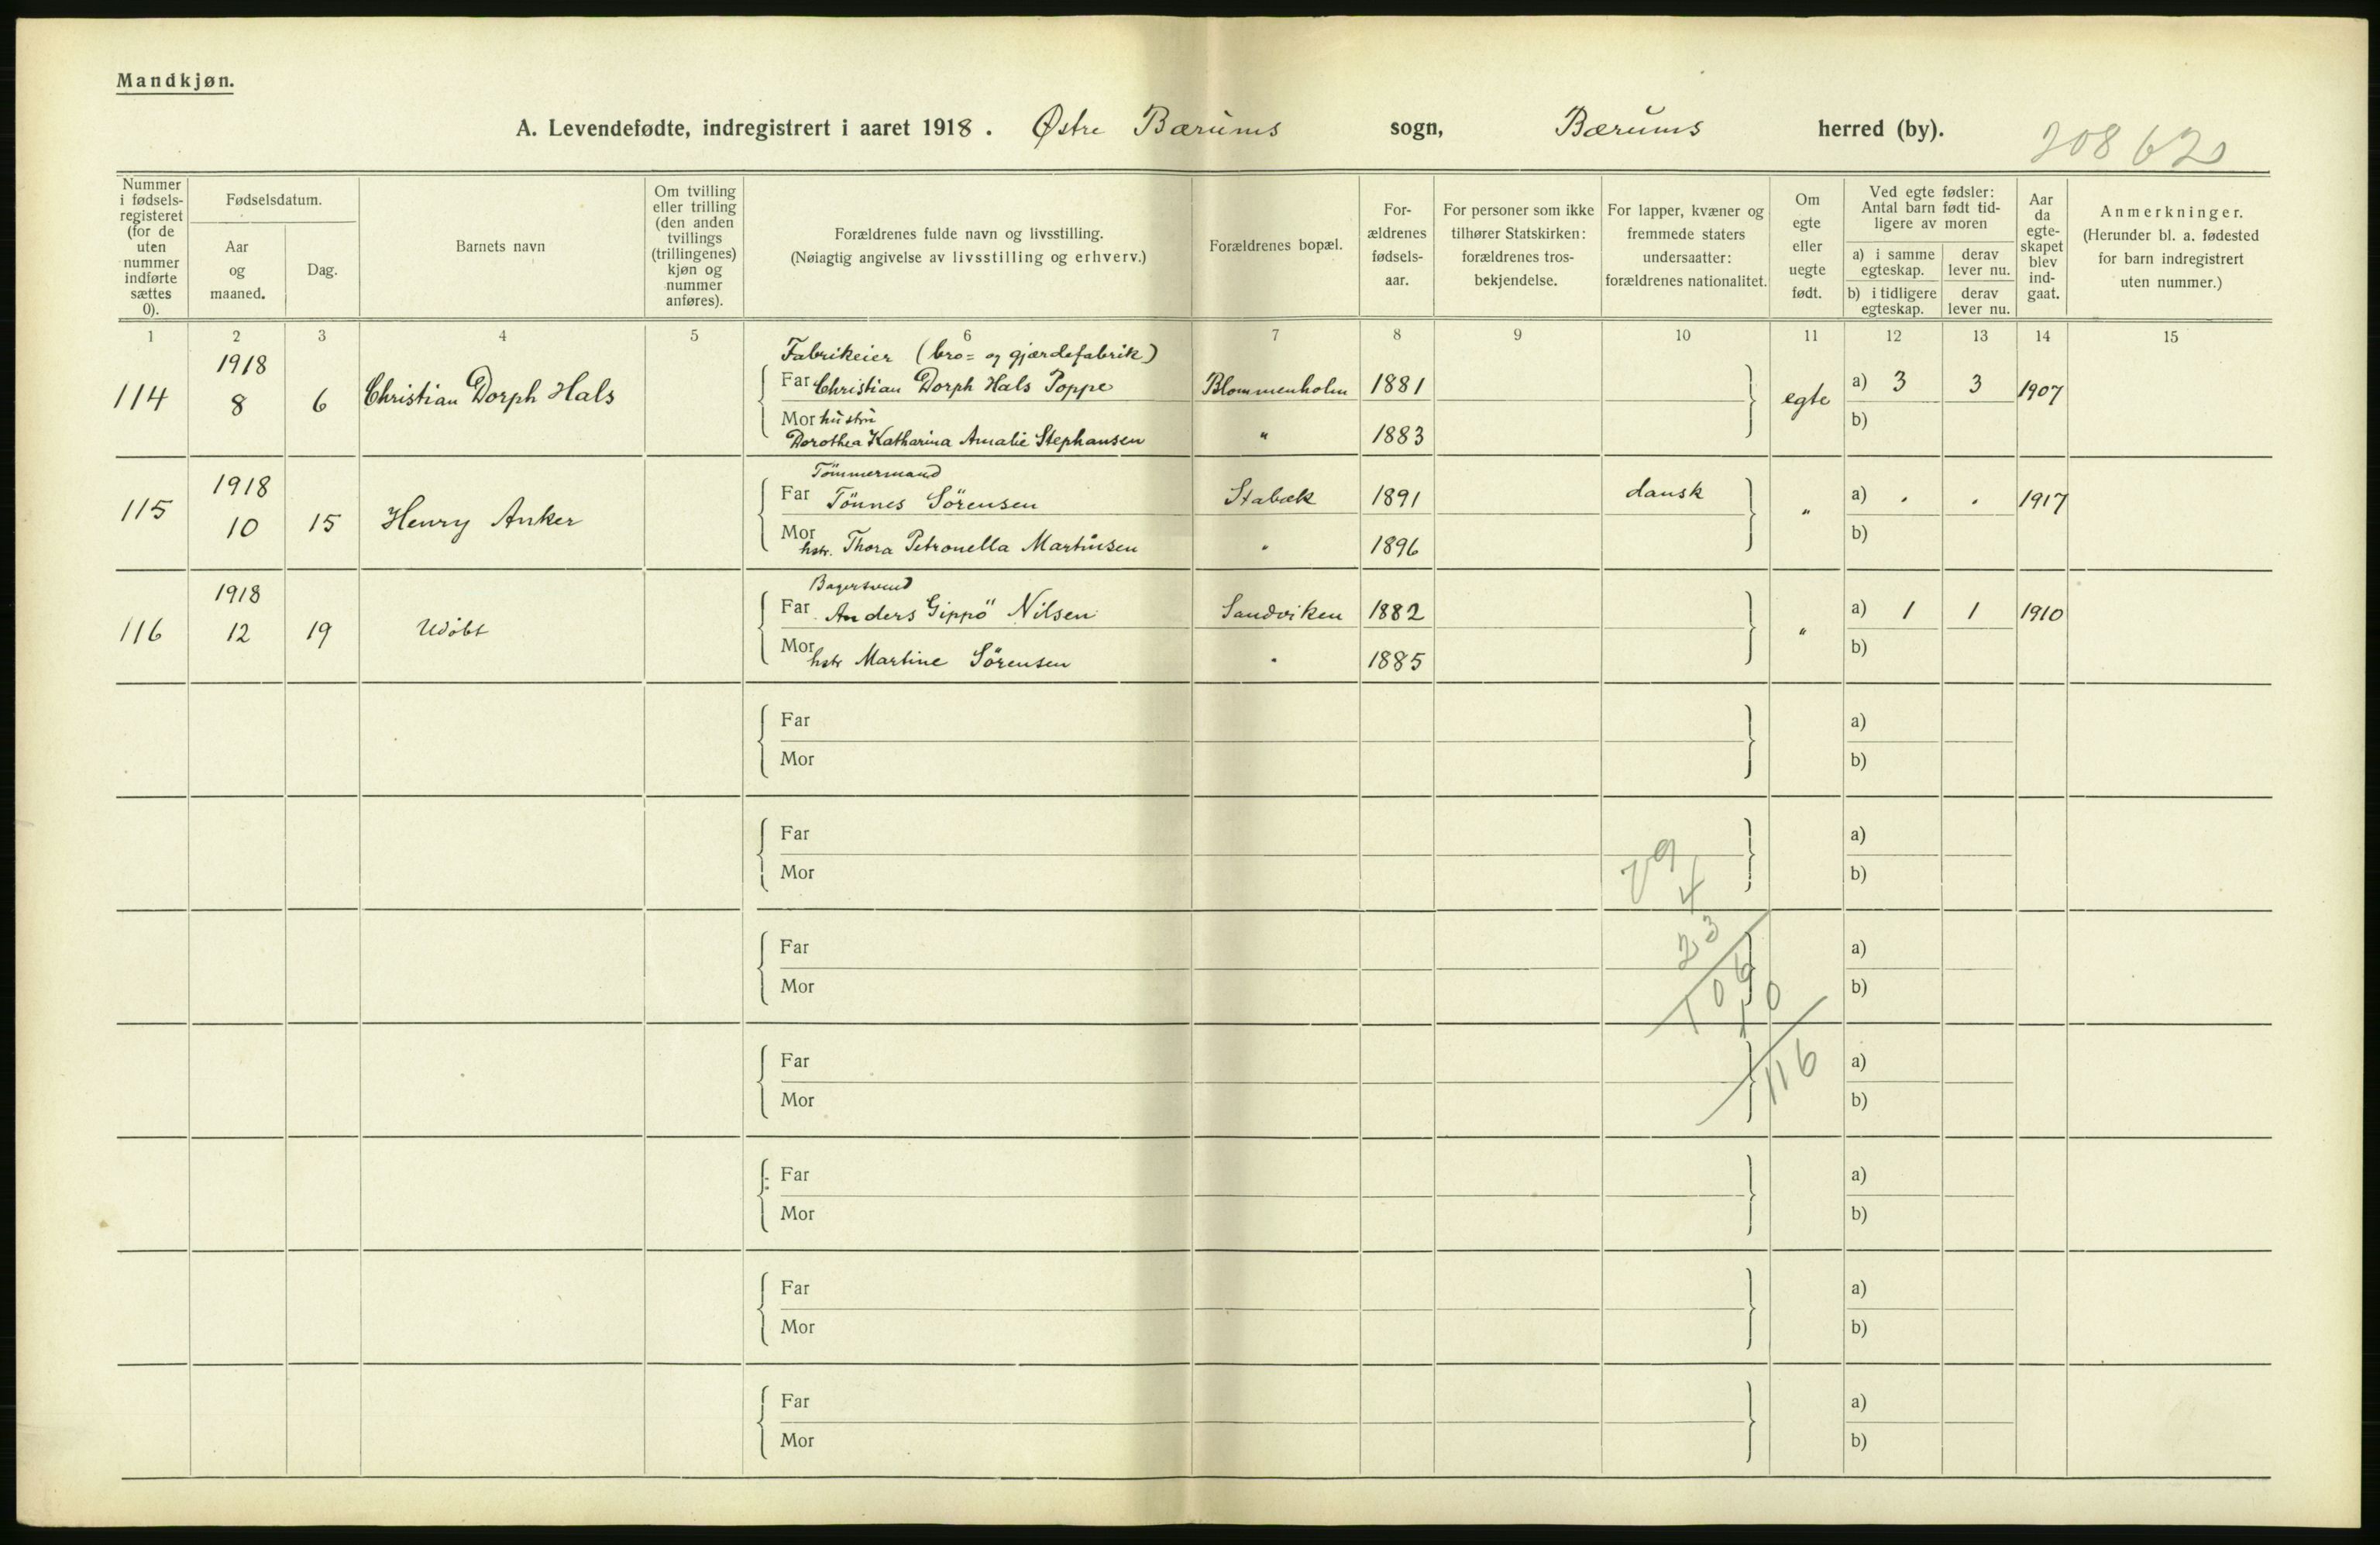 Mandkjøn.
A. Levendefødte, indregistrert i aaret 1918. Østre Bærums sogn, Bærums herred (by).
208 620
Nummer i fødsels-registeret (for de uten nummer indførte sættes 0).
Fødselsdatum.
Aar og maaned.
Dag.
Barnets navn
Om tvilling eller trilling (den anden tvillings (trillingenes) kjøn og nummer anføres).
Forældrenes fulde navn og livsstilling.
(Nøiagtig angivelse av livsstilling og erhverv.)
Forældrenes bopæl.
For-ældrenes fødsels-aar.
For personer som ikke tilhører Statskirken: forældrenes tros-bekjendelse.
For lapper, kvæner og fremmede staters undersaatter: forældrenes nationalitet.
Om egte eller uegte født.
Ved egte fødsler: Antal barn født tid-ligere av moren
a) i samme egteskap.
derav lever nu.
b) i tidligere egteskap.
derav lever nu.
Aar da egte-skapet blev ind-gaat.
Anmerkninger.
(Herunder bl. a. fødested for barn indregistrert uten nummer.)
1 2 3 4 5 6 7 8 9 10 11 12 13 14 15
Fabrikeier (bro= og gjærdefabrik)
114 1918 8 6 Christian Dorph Hals Far Christian Dorph Hals Poppe Blommenholm 1881 egte a) 3 3 1907
Mor hustru
Dorothea Katharina Amalie Stephansen " 1883 b)
Tömmermand
115 1918 10 15 Henry Anker Far Tönnes Sörensen Stabæk 1891 dansk " a) . . 1917
Mor hstr. Thora Petronella Martinsen " 1896 b)
Bagersvend
116 1918 12 19 Udöbt Far Anders Gippö Nilsen Sandviken 1882 " a) 1 1 1910
Mor hstr Martine Sörensen " 1885 b)
Far a)
Mor b)
Far a)
Mor b)
79
4
Far a)
Mor b)
23
106
10
Far a)
Mor b)
116
Far a)
Mor b)
Far a)
Mor b)
Far a)
Mor b)